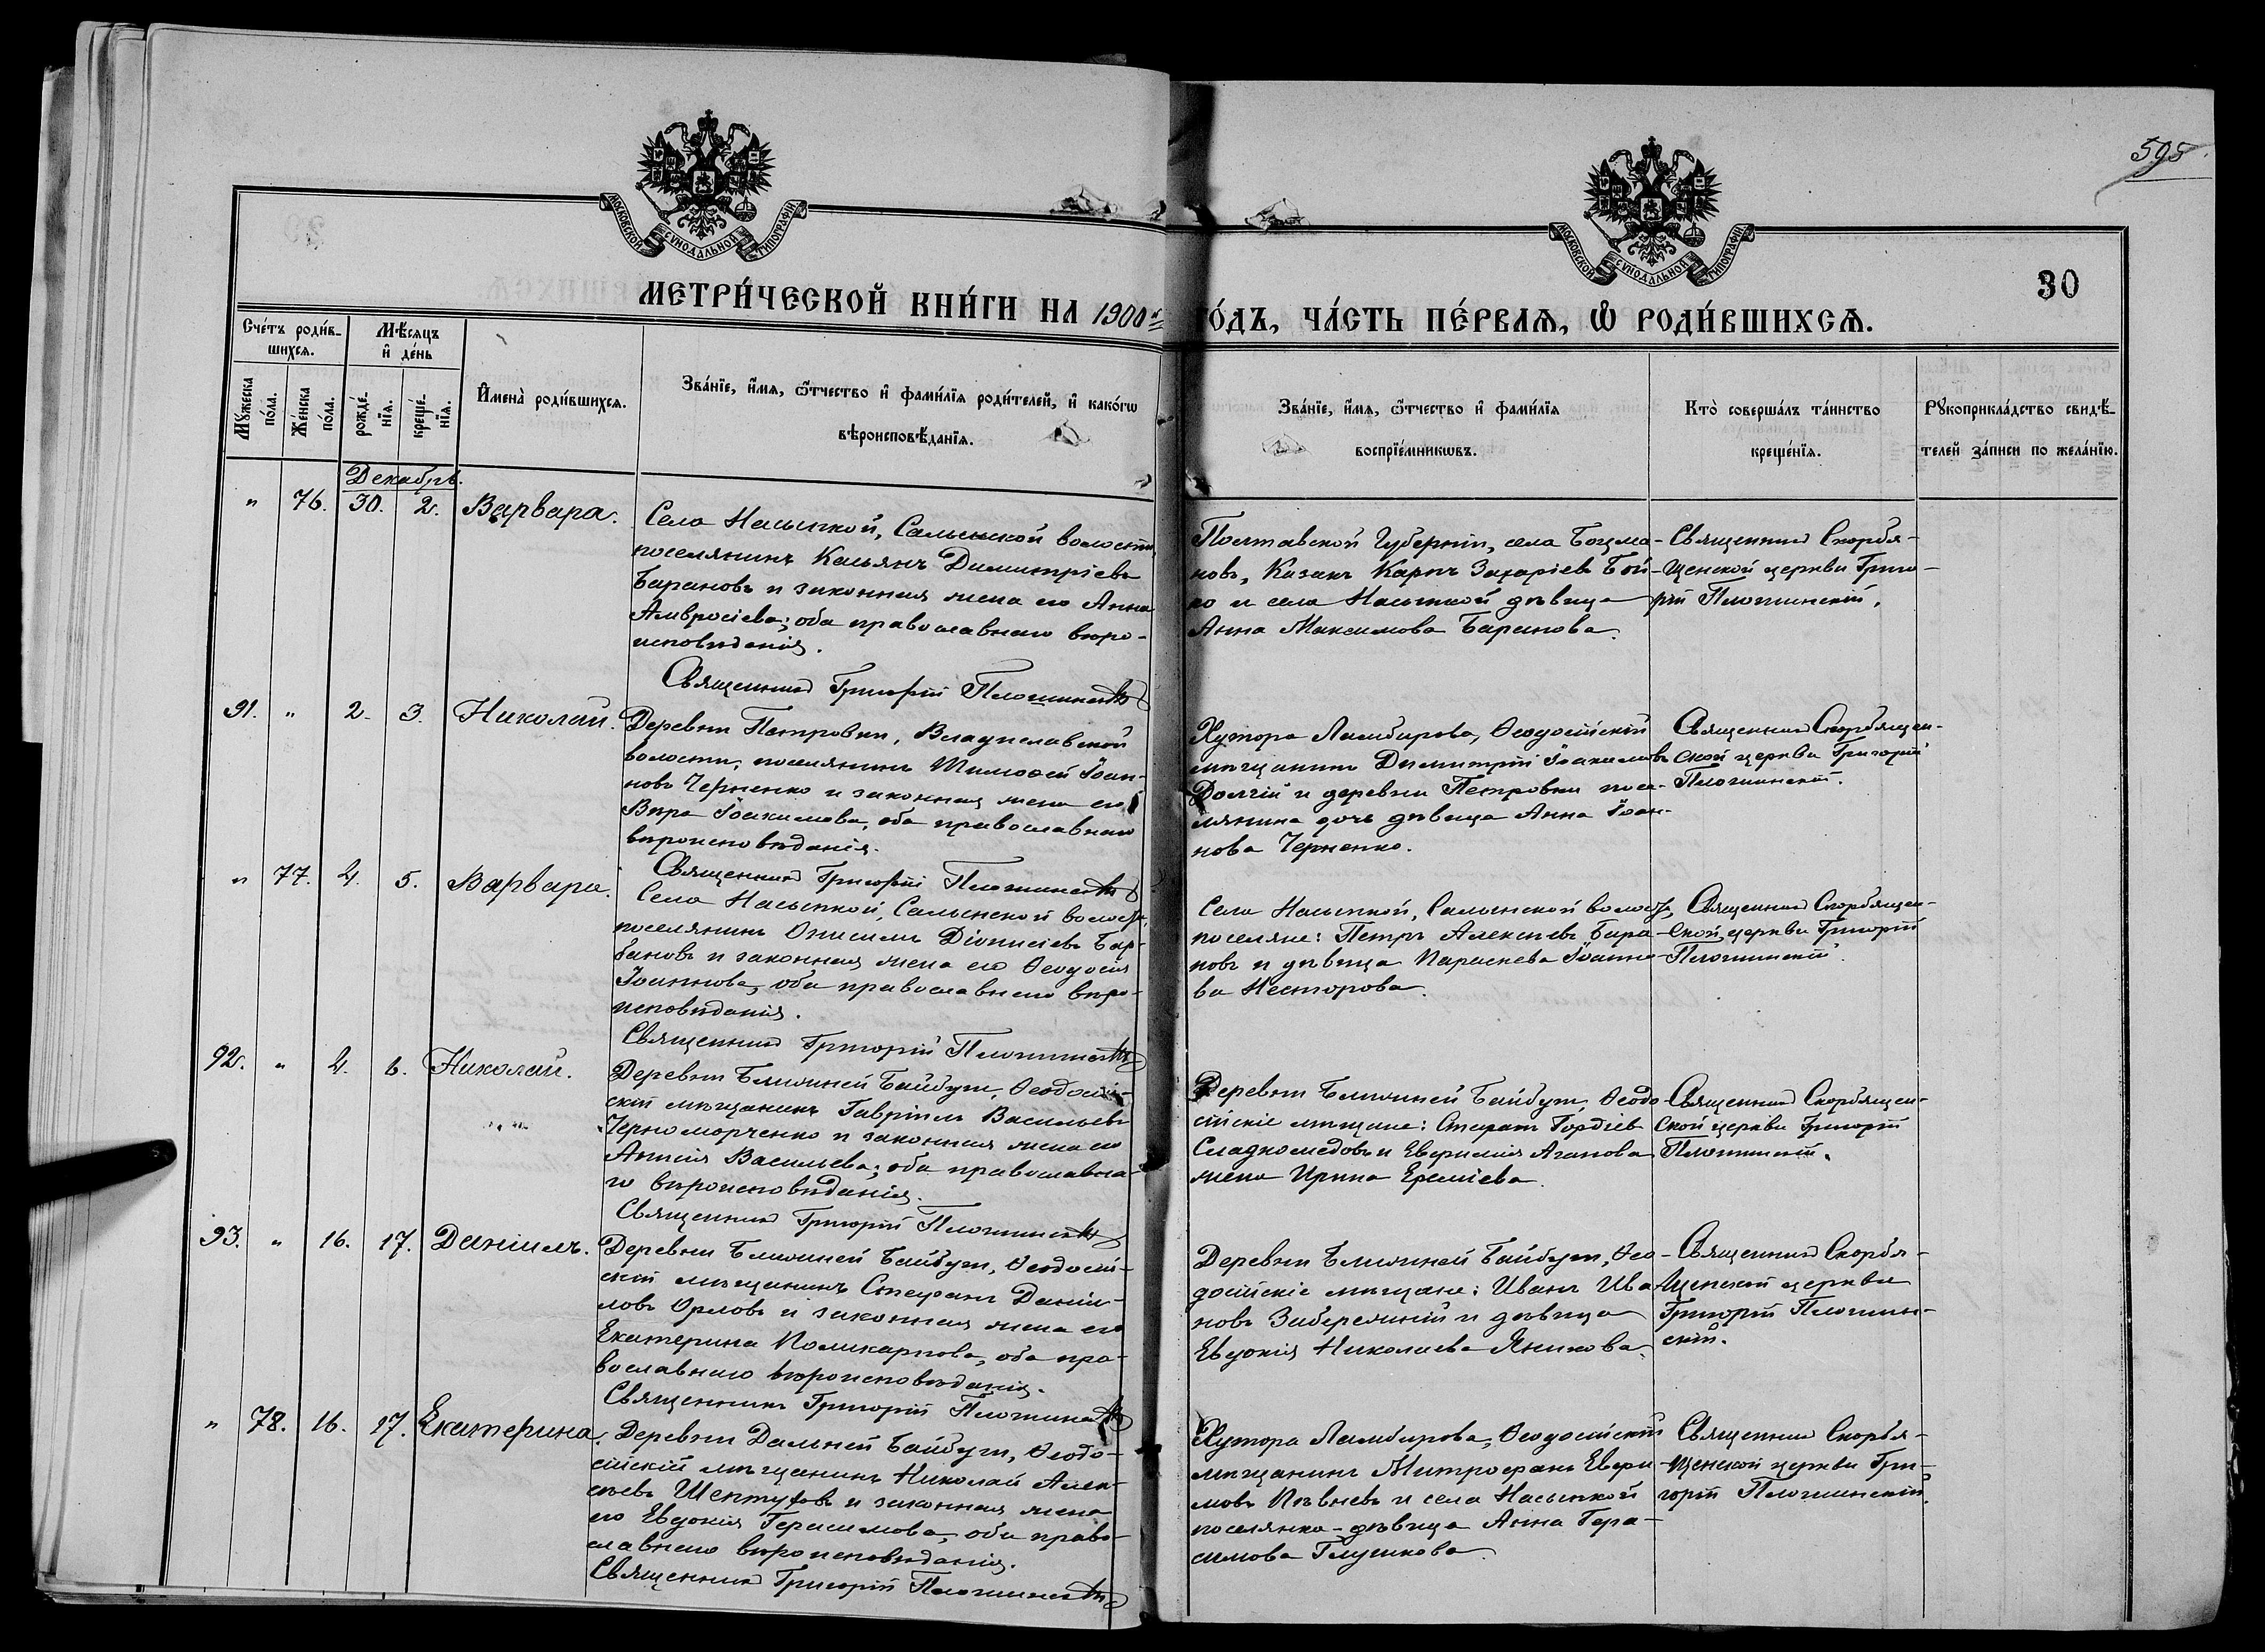 595
МОСКОВСКОЙ СѴНОДАЛЬНОЙ ТИПОГРАФІИ
МОСКОВСКОЙ СѴНОДАЛЬНОЙ ТИПОГРАФІИ
30
МЕТРИ́ЧЕСКОЙ КНИ́ГИ НА 1900й
ГО́ДЪ, ЧА́СТЬ ПЕ́РВАЯ, Ѡ҆ РОДИ́ВШИХСѦ.
Сче́тъ роди́в-
шихсѧ.
Мѣ́сѧцъ
и҆ де́нь
Мꙋ́жеска
по́ла.
Же́нска
по́ла.
рожде́-
нїѧ.
креще́-
нїѧ.
И҆мена̀ роди́вшихсѧ.
Зва́нїе, и҆́мѧ, ѻ҆́тчество и҆ фами́лїѧ роди́телей, и҆ како́гѡ
вѣроисповѣ́данїѧ.
Зва́нїе, и҆́мѧ, ѻ҆́тчество и҆ фами́лїѧ
воспрїе́мникѡвъ.
Кто̀ соверша́лъ та́инство
креще́нїѧ.
Рꙋкоприкла́дство свидѣ́-
телей за́писи по жела́нїю.
Декабрь.
" 76. 30. 2. Варвара.
Села Насыпкой, Салынской волости
поселянинъ Касьянъ Димитріевъ
Барановъ и законная жена его Анна
Амвросіева; оба православнаго вѣро-
исповѣданія.
Священникъ Григорій Плогинскій
Полтавской Губерніи, села
новъ, Казакъ Карпъ Захаріевъ Бой-
ко и села Насыпкой дѣвица
Анна Максимова Баранова.
Священникъ Скорбя-
щенской церкви Григо-
рій Плогинскій.
91. " 2. 3. Николай.
Деревни Петровки, Владиславской
волости, поселянинъ Тимоѳей Іоан-
новъ Черненко и законная жена его
Вѣра Іоакимова, оба православнаго
вѣроисповѣданія.
Священникъ Григорій Плогинскій
Хутора Ламбирова, Ѳеодосійскій
мѣщанинъ Димитрій Іоакимовъ
Долгій и деревни Петровки посе-
лянина дочь дѣвица Анна Іоан-
нова Черненко.
Священникъ Скорбящен-
ской церкви Григорій
Плогинскій.
" 77. 4. 5. Варвара.
Села Насыпкой, Салынской волости,
поселянинъ Онисимъ Діонисіевъ Бар-
бановъ и законная жена его Ѳеодосія
Іоаннова, оба православнаго вѣро-
исповѣданія.
Священникъ Григорій Плогинскій
Села Насыпкой, Салынской волости,
поселяне: Петръ Алексѣевъ Бара-
новъ и дѣвица Параскева Іоанно-
ва Несторова.
Священникъ Скорбящен-
ской церкви Григорій
Плогинскій.
92. " 4. 6. Николай.
Деревни Ближней Байбуги, Ѳеодосій-
скій мѣщанинъ Гавріилъ Васильевъ
Черноморченко и законная жена его
Анисія Васильева; оба православна-
го вѣроисповѣданія.
Священникъ Григорій Плогинскій
Деревни Ближней Байбуги, Ѳеодо-
сійскіе мѣщане: Стефанъ Гордіевъ
Сладкомедовъ и Евфимія Аганова
жена Ирина Ереміева.
Священникъ Скорбящен-
ской церкви Григорій
Плогинскій.
93. " 16. 17. Даніилъ.
Деревни Ближней Байбуги, Ѳеодосій-
скій мѣщанинъ Стефанъ Даніи-
ловъ Орловъ и законная жена его
Екатерина Поликарпова, оба пра-
вославнаго вѣроисповѣданія.
Священникъ Григорій Плогинскій
Деревни Ближней Байбуги, Ѳео-
досійскіе мѣщане: Иванъ Ива-
новъ Забережній и дѣвица
Евдокія Николаева Яникова.
Священникъ Скорбя-
щенской церкви
Григорій Плогин-
скій.
" 78. 16. 17. Екатерина.
Деревни Дальней Байбуги, Ѳеодо-
сійскій мѣщанинъ Николай Алек-
сѣевъ Шептуховъ и законная жена
его Евдокія Герасимова, оба право-
славнаго вѣроисповѣданія.
Священникъ Григорій Плогинскій
Хутора Ламбирова, Ѳеодосійскій
мѣщанинъ Митрофанъ Евфи-
мовъ Пѣвневъ и села Насыпкой
поселянка-дѣвица Анна Гера-
симова Глушкова.
Священникъ Скорбя-
щенской церкви Гри-
горій Плогинскій.